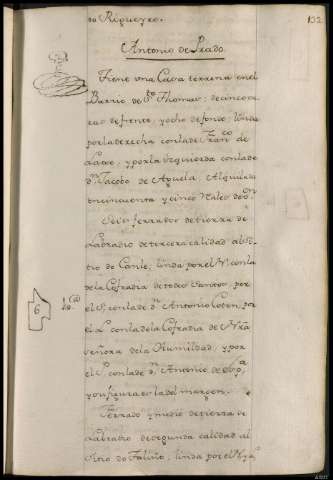 132
do Rigueyro.
Antonio de Prado.
Tiene una Casa terrena en el
Barrio de Sto. Thomas: de cinco va-
ras de frente, y ocho de fondo, linda
por la derecha con la de Franco. de
y por la izquierda con la de
dn. Jacobo de Alquilada
en cincuenta y cinco Rales de von
Seis ferrados de tierra de
Labradio de tercera calidad al Si-
tio de linda por el N. con la
de la Cofradia de todos Santos, por
el P. con la de dn. Antonio por
el L. con la de la Cofradia de Nra
Señora de la Humildad, y por
el S. con la de dn. Antonio de
y su figura es la del margen.
6
Ferrado y medio de tierra de
Labradio de segunda calidad al
Sitio do linda por el